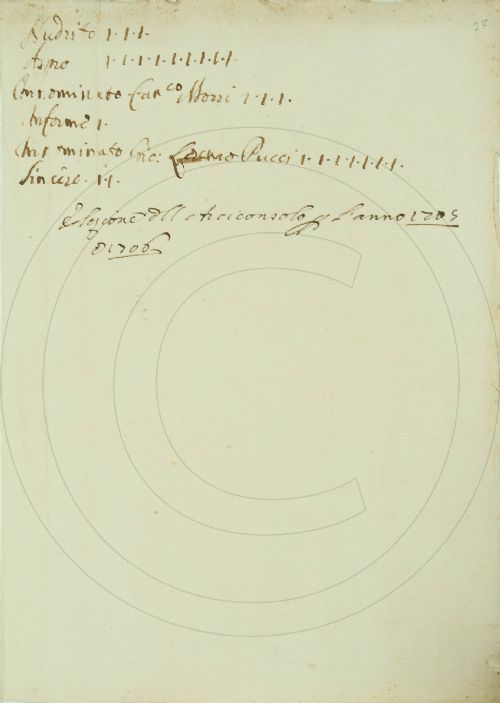 27
Nudrito 1·1·1·
Aspro 1·1·1·1·1·1·1·1·
Innominato Fanco Morri 1·1·1·
Informe 1·
Innominato Gio: Lorenzo Pucci 1·1·1·1·1·1·1·
Sincero· 1·1·
Elezione dell Arciconsolo p l'anno 1705
e 1706